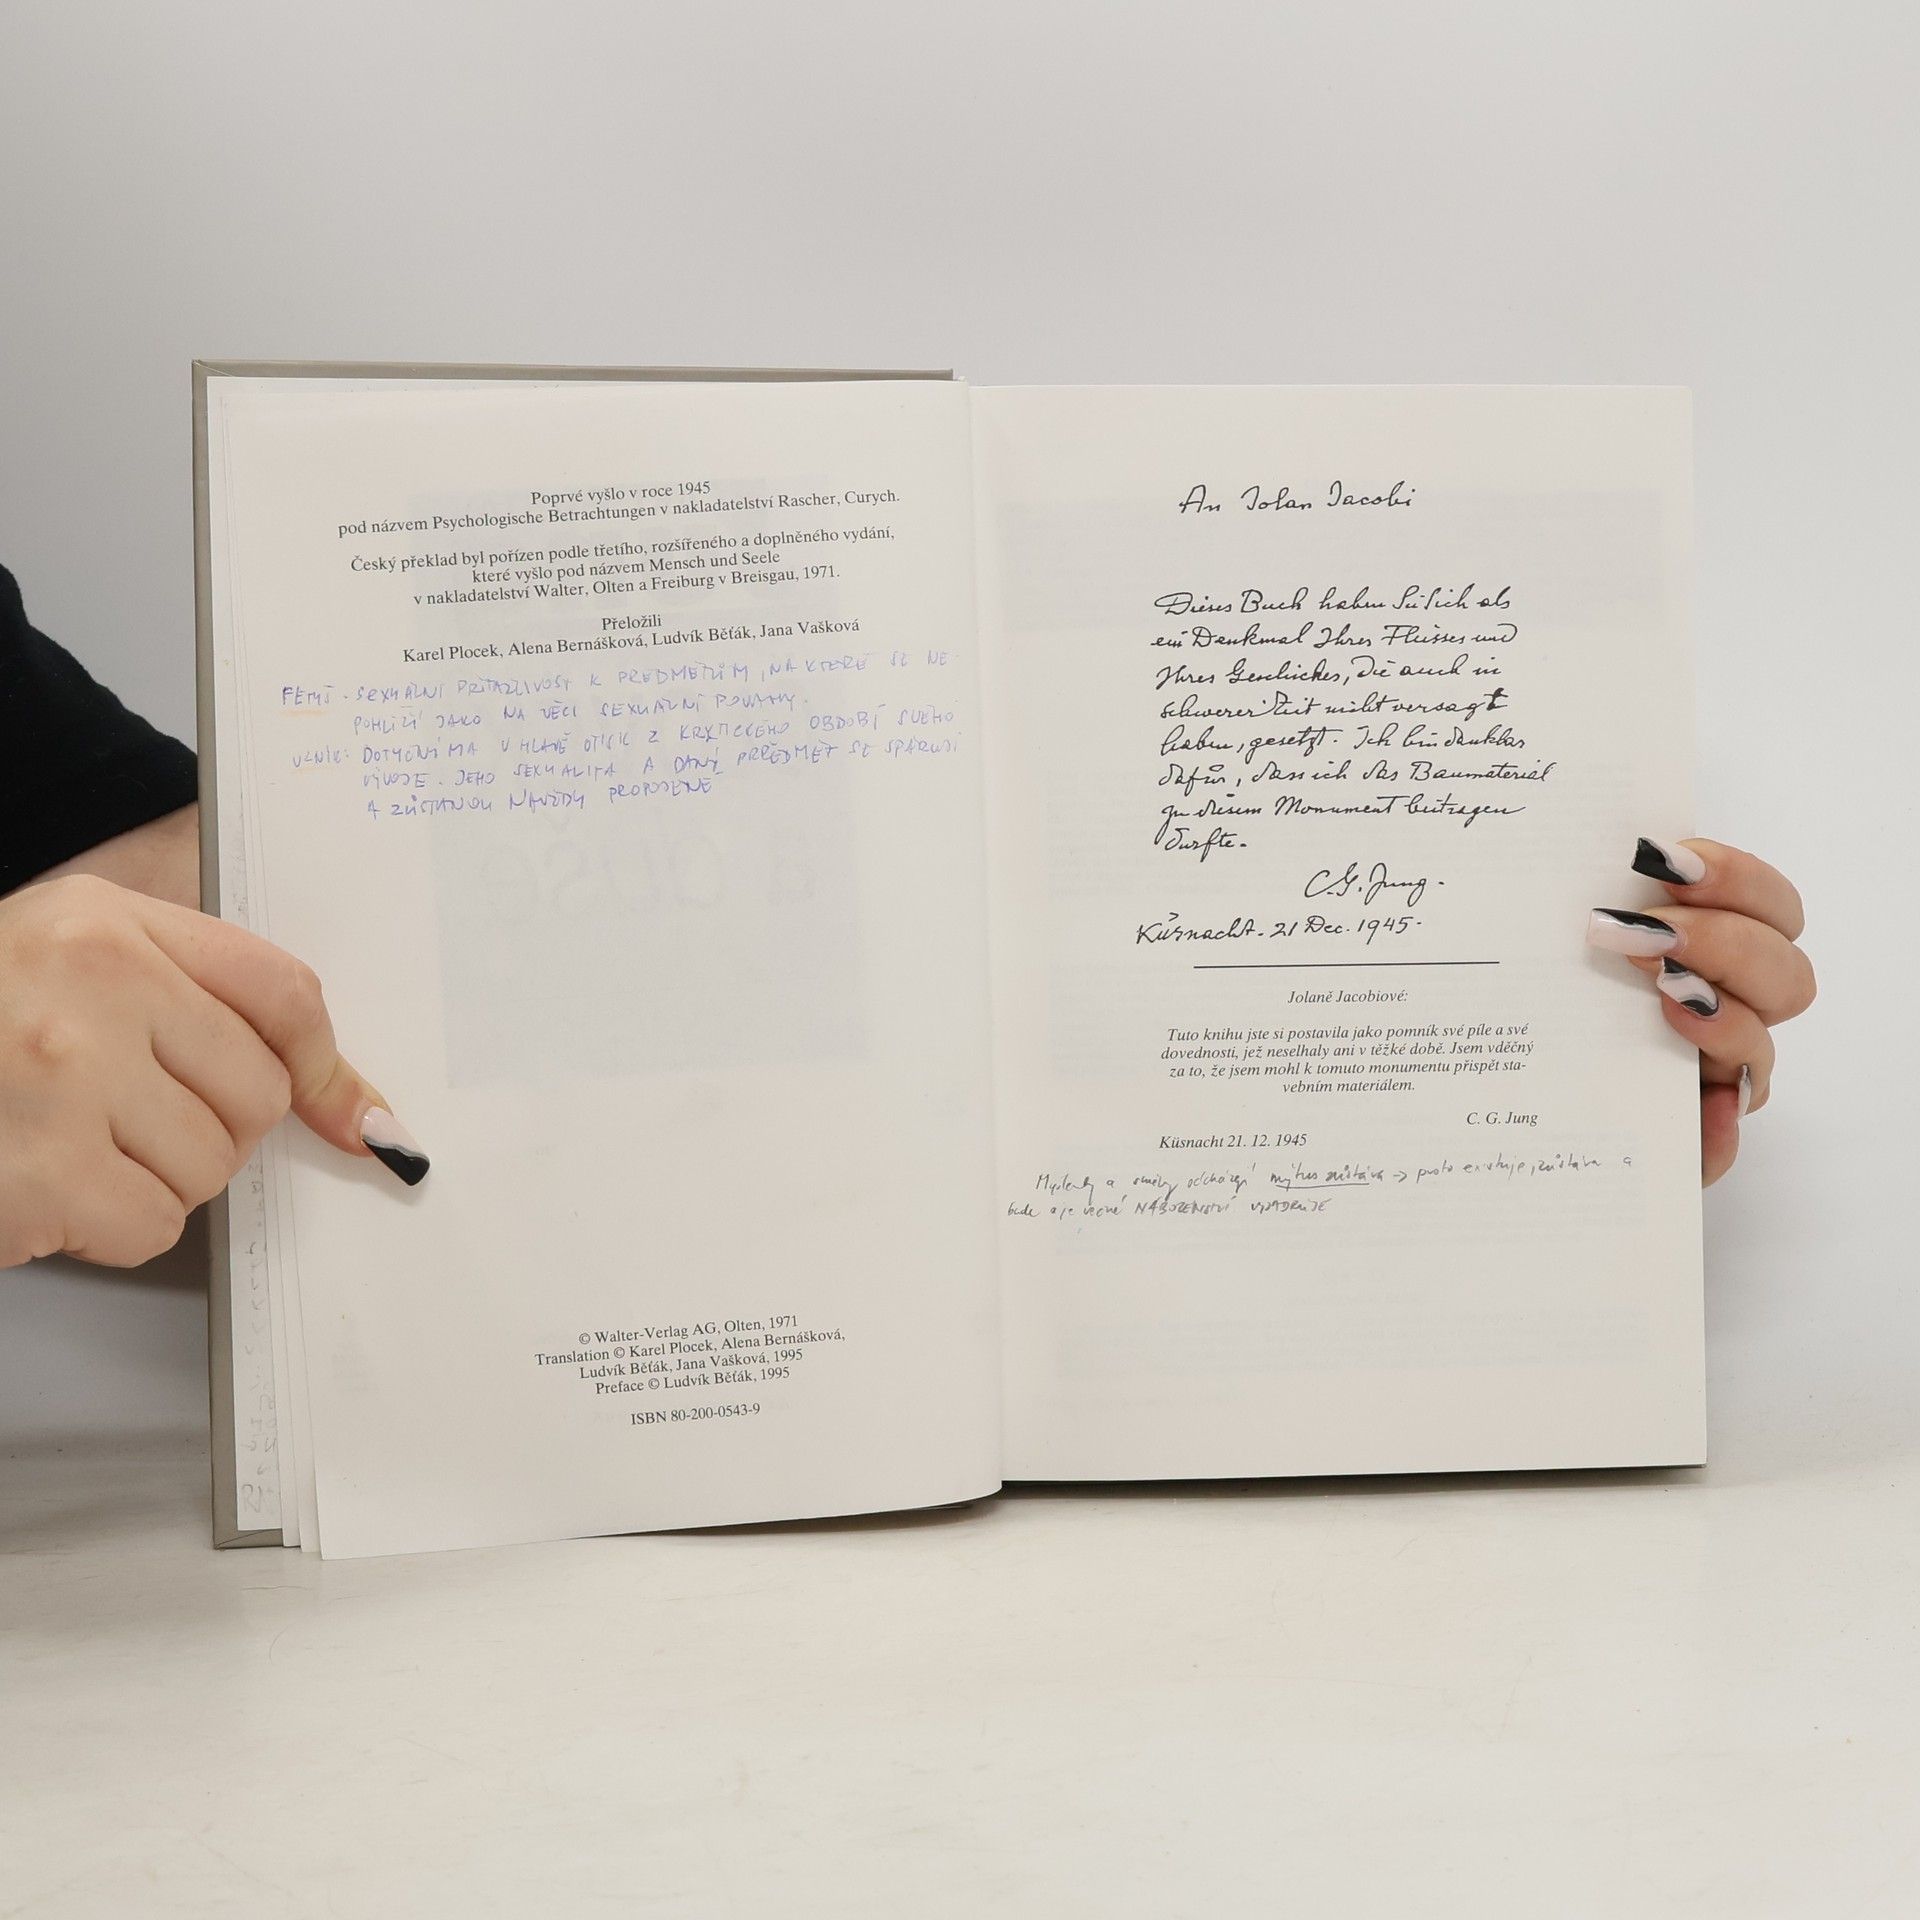 Poprvé vyšlo v roce 1945
pod názvem Psychologische Betrachtungen v nakladatelství Rascher, Curych.
Český překlad byl pořízen podle třetího, rozšířeného a doplněného vydání,
které vyšlo pod názvem Mensch und Seele
v nakladatelství Walter, Olten a Freiburg v Breisgau, 1971.
Přeložili
Karel Plocek, Alena Bernášková, Ludvík Běťák, Jana Vašková
FETIŠ - SEXUÁLNÍ PŘITAŽLIVOST K PŘEDMĚTŮM, NA KTERÉ SE NE-
POHLÍŽÍ JAKO NA VĚCI SEXUÁLNÍ POVAHY.
VZNIK: DOTYČNÍ MA V HLAVĚ OTISK Z KRYTICKÉHO OBDOBÍ SVÉHO
VÝVOJE. JEHO SEXUALITA A DANÝ PŘEDMĚT SE SPÁRUJÍ
A ZŮSTANOU NAVŽDY PROPOJENÉ
© Walter-Verlag AG, Olten, 1971
Translation © Karel Plocek, Alena Bernášková,
Ludvík Běťák, Jana Vašková, 1995
Preface © Ludvík Běťák, 1995
ISBN 80-200-0543-9
An Jolan Jacobi
Dieses Buch haben Sie sich als
ein Denkmal Ihres Fleisses und
Ihres Geschickes, die auch in
schwerer Zeit nicht versagt
haben, gesetzt. Ich bin dankbar
dafür, dass ich das Baumaterial
zu diesem Monument beitragen
durfte.
C.G. Jung.
Küsnacht. 21 Dec. 1945.
Jolaně Jacobiové:
Tuto knihu jste si postavila jako pomník své píle a své
dovednosti, jež neselhaly ani v těžké době. Jsem vděčný
za to, že jsem mohl k tomuto monumentu přispět sta-
vebním materiálem.
C. G. Jung
Küsnacht 21. 12. 1945
Myslenky a směry odcházejí mýtus zůstáva → proto existuje, zůstáva a
bude a je věčné NÁBOŽENSTVÍ VYJADRUJE